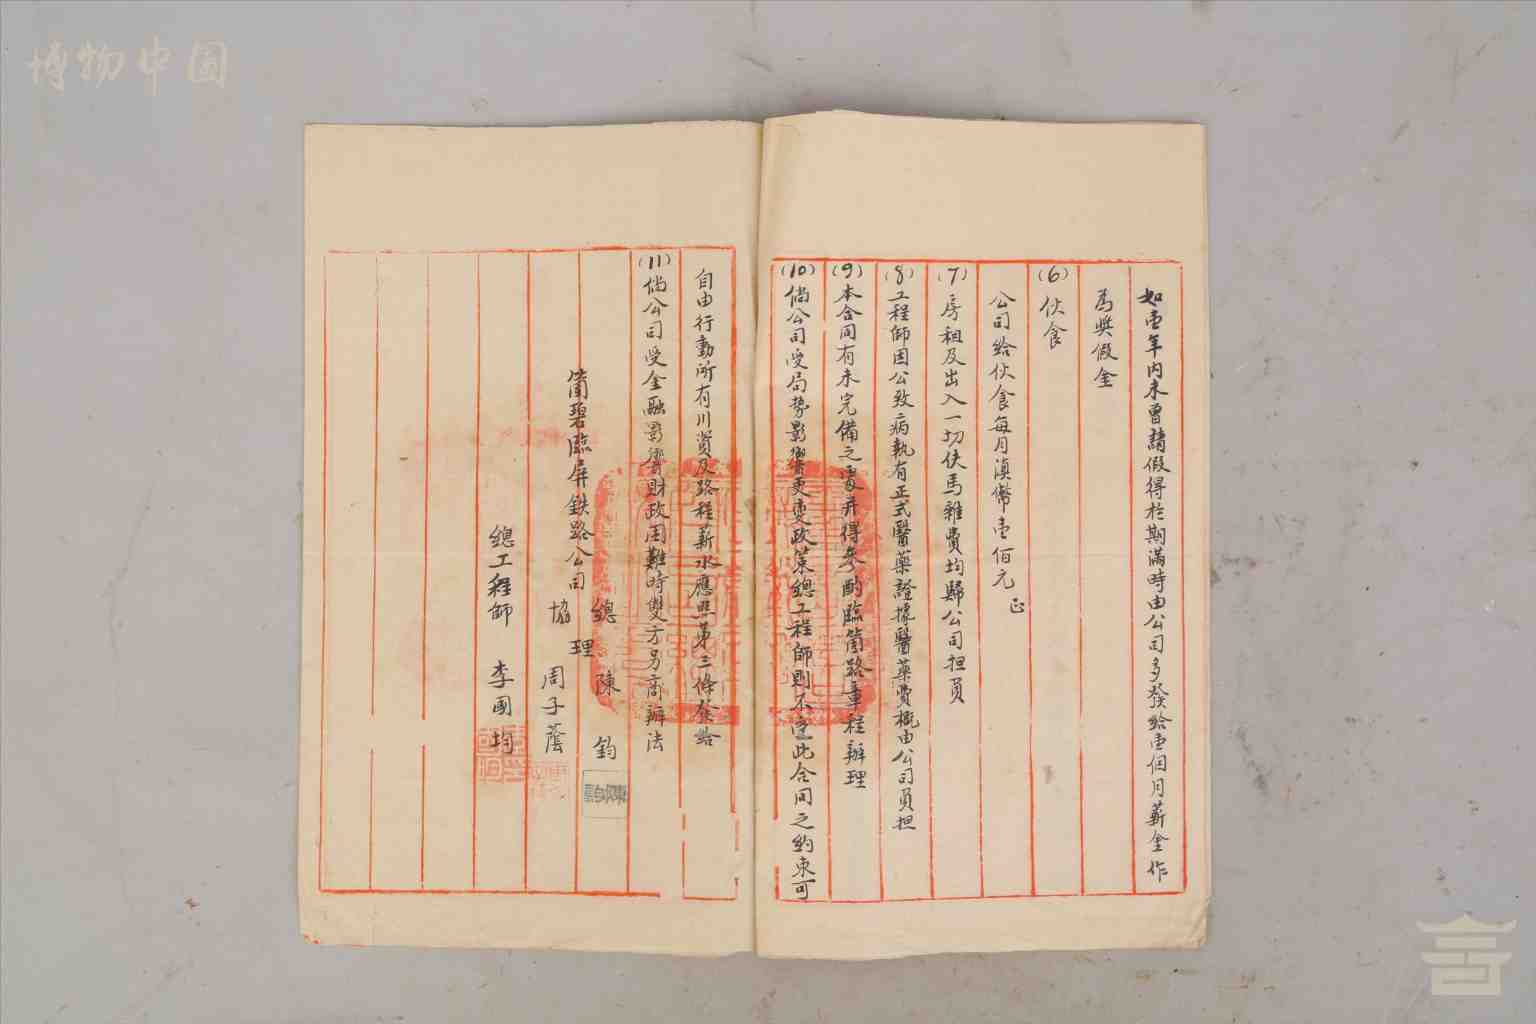 博物中国
如壹年內未曾請假得於期滿時由公司多發給壹個月薪金作
為奬假金
(6)伙食
公司給伙食每月滇幣壹佰元正
(7)房租及出入一切伕馬雜費均歸公司担負
(8)工程師因公致病執有正式醫藥證據醫藥費概由公司負担
(9)本合同有未完備之處并得參酌臨箇路章程辦理
(10)倘公司受局勢影響更變政策總工程師則不受此合同之約束可
自由行動所有川資及路程薪水應照第三條發給
(11)倘公司受金融影響財政困難時雙方另商辦法
箇碧臨屏鉄路公司
總理 陳鈞
協理 周子蔭
總工程師 李國均